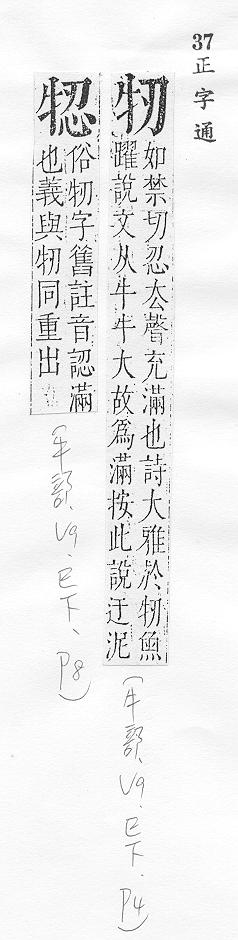 37正字通
牣
如禁切忍去聲充滿也詩大雅於牣魚
躍說文从牛牛大故爲滿按此說迂泥
(牛部、V9、巳下、P4)
㸾
俗牣字舊註音認滿
也義與牣同重出
(牛部、V9、巳下、P8)